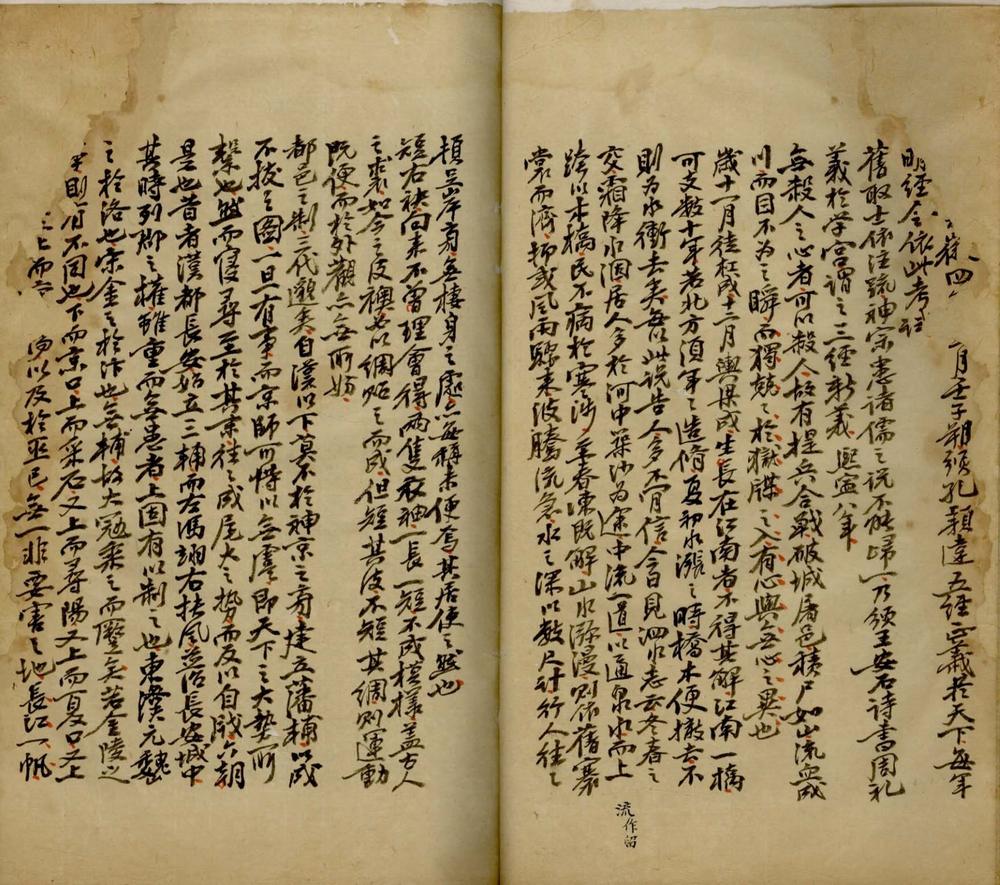 月壬子朔頒孔穎達五經正義於天下每年
明經令依此考試
舊取士依注疏神宗患諸儒之說不能歸一乃頒王安石詩書周礼
義於学宮謂之三經新義熙寧八年
無殺人之心者可以殺人故有提兵合戰破城屠邑積尸如山流血成
川而目不為之瞬而獨兢兢於獄牒之入有心與無心之異也
歲十一月徒杠成十二月輿梁成生長在江南者不得其解江南一橋
可支數十年若北方須年年造脩夏初水漲之時橋木便撤去不
則為水衝去矣每以此說告人多不肯信今日見泗水志云冬春之
交霜降水涸居人多於河中築沙為途中流一道以通泉水而上
跨以木橋民不病於寒涉至春凍既解山水瀰漫則依舊褰
裳而濟抑或風雨驟來波騰流急水之深以數尺計行人往往
流作留
須無岸旁為棲身之處亦無稱未便為其居使之然也
短右袂向來不曾理會得兩隻衣袖一長一短不成模樣蓋古人
之裘如今之皮襖必以綢
之而成但短其皮不短其綢則運動
既便而於外觀亦無所妨
都邑之制三代邈矣自漢以下莫不於神京之旁建立藩輔以成
不拔之圖一旦有事而京師可恃以無虞即天下之大勢所
繫也然而侵尋至於其末往往成尾大之勢而反以自戕六朝
是也昔者漢都長安始立三輔而左馮翊右扶風並治長安城中
其時列郡之權雖重而無患者上固有以制之也東漢元魏
之於洛也宋金之於汴也無輔故大冠來之而壓矣若金陵之
則有不同也下而京口上而采石又上而尋陽又上而夏口又上
之上而
以及於巫巴無一非要害之地長江一帆